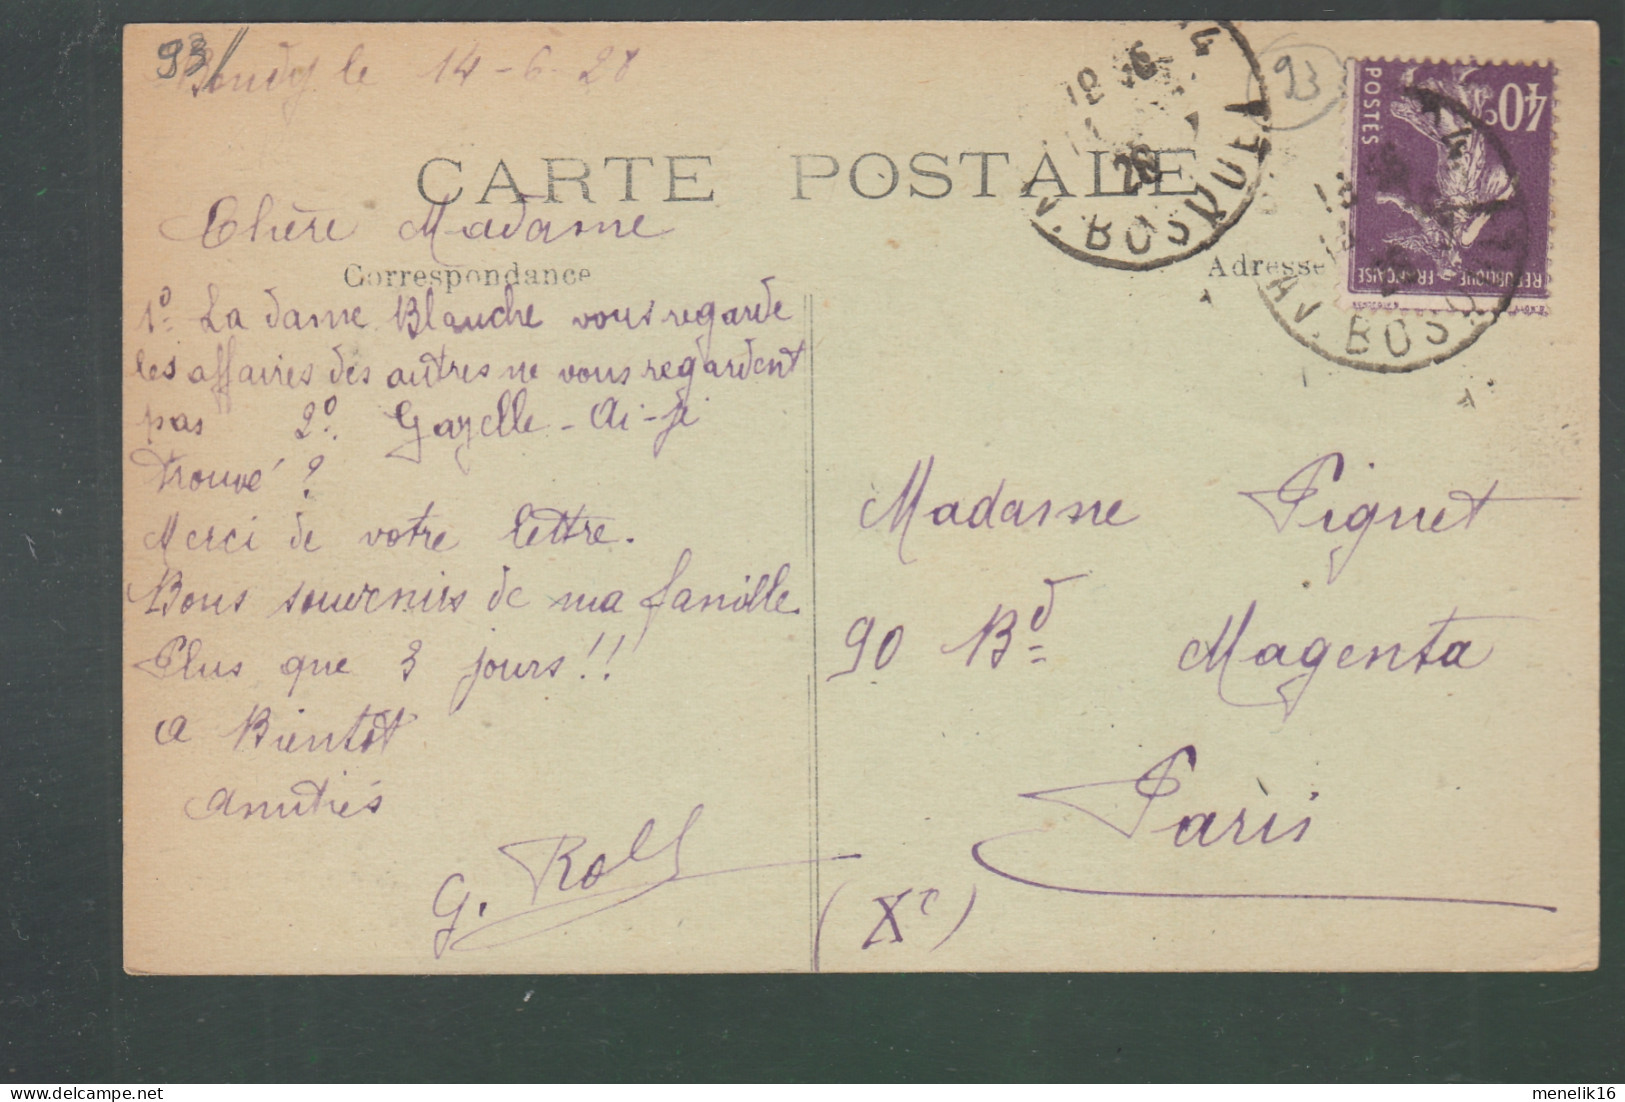 93
Bondy le 14-6-28
93
CARTE POSTALE
POSTES
40c
REPUBLIQUE FRANÇAISE
AV. BOSQUET
AV. BOSQ
Chère Madame
Correspondance
Adresse
1º La dame Blanche vous regarde
les affaires des autres ne vous regardent
pas 2º. Gazelle - Ai-je
trouvé ?
Merci de votre lettre.
Bons souvenirs de ma famille
Plus que 3 jours !!
A Bientôt
Amitiés
G. Roll
Madame Piguet
90 Bd Magenta
Paris
(Xe)
menelik16